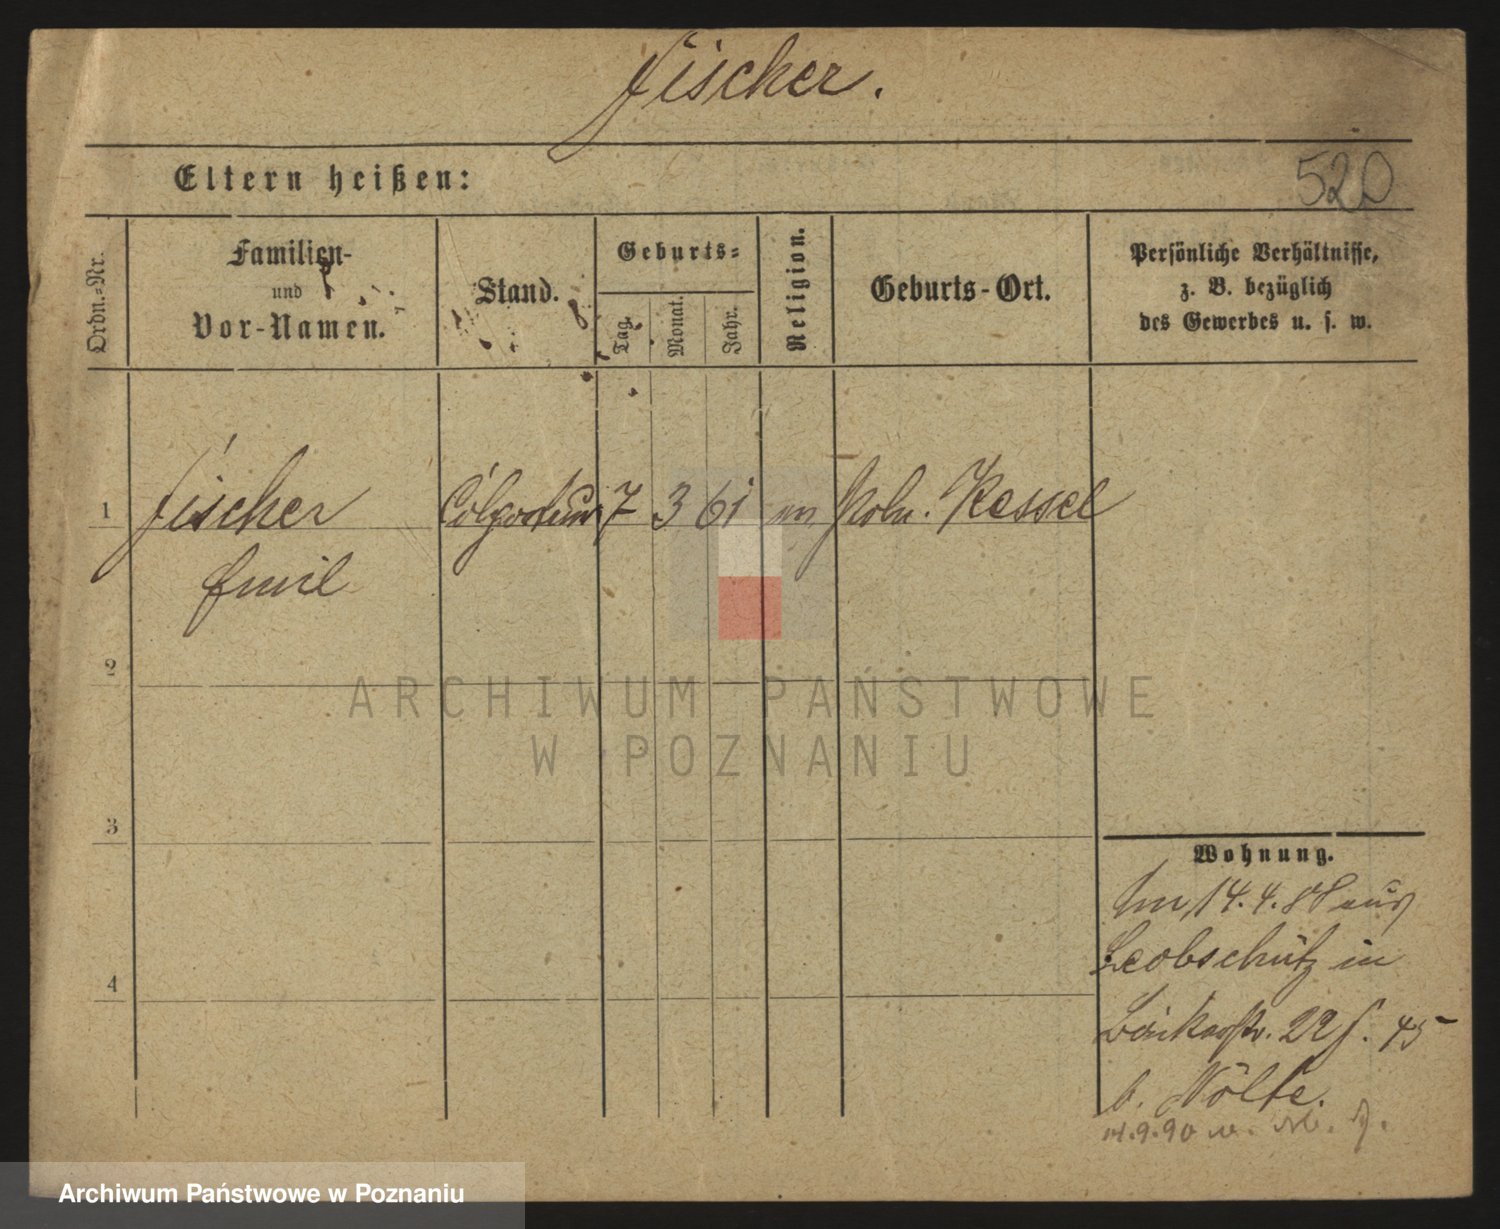 Fischer.
Eltern heißen:
520
Ordn.-Nr.
Familien-
und
Vor-Namen.
Stand.
Geburts-
Tag.
Monat.
Jahr.
Religion.
Geburts-Ort.
Persönliche Verhältnisse,
z. B. bezüglich
des Gewerbes u. s. w.
1 Fischer 7 3 61 Poln. Kessel
Emil
2
3
4
ARCHIWUM PAŃSTWOWE
W POZNANIU
Wohnung.
14.4.88 aus
Leobschütz in
22 45
b. Nölte.
9.90
Archiwum Państwowe w Poznaniu